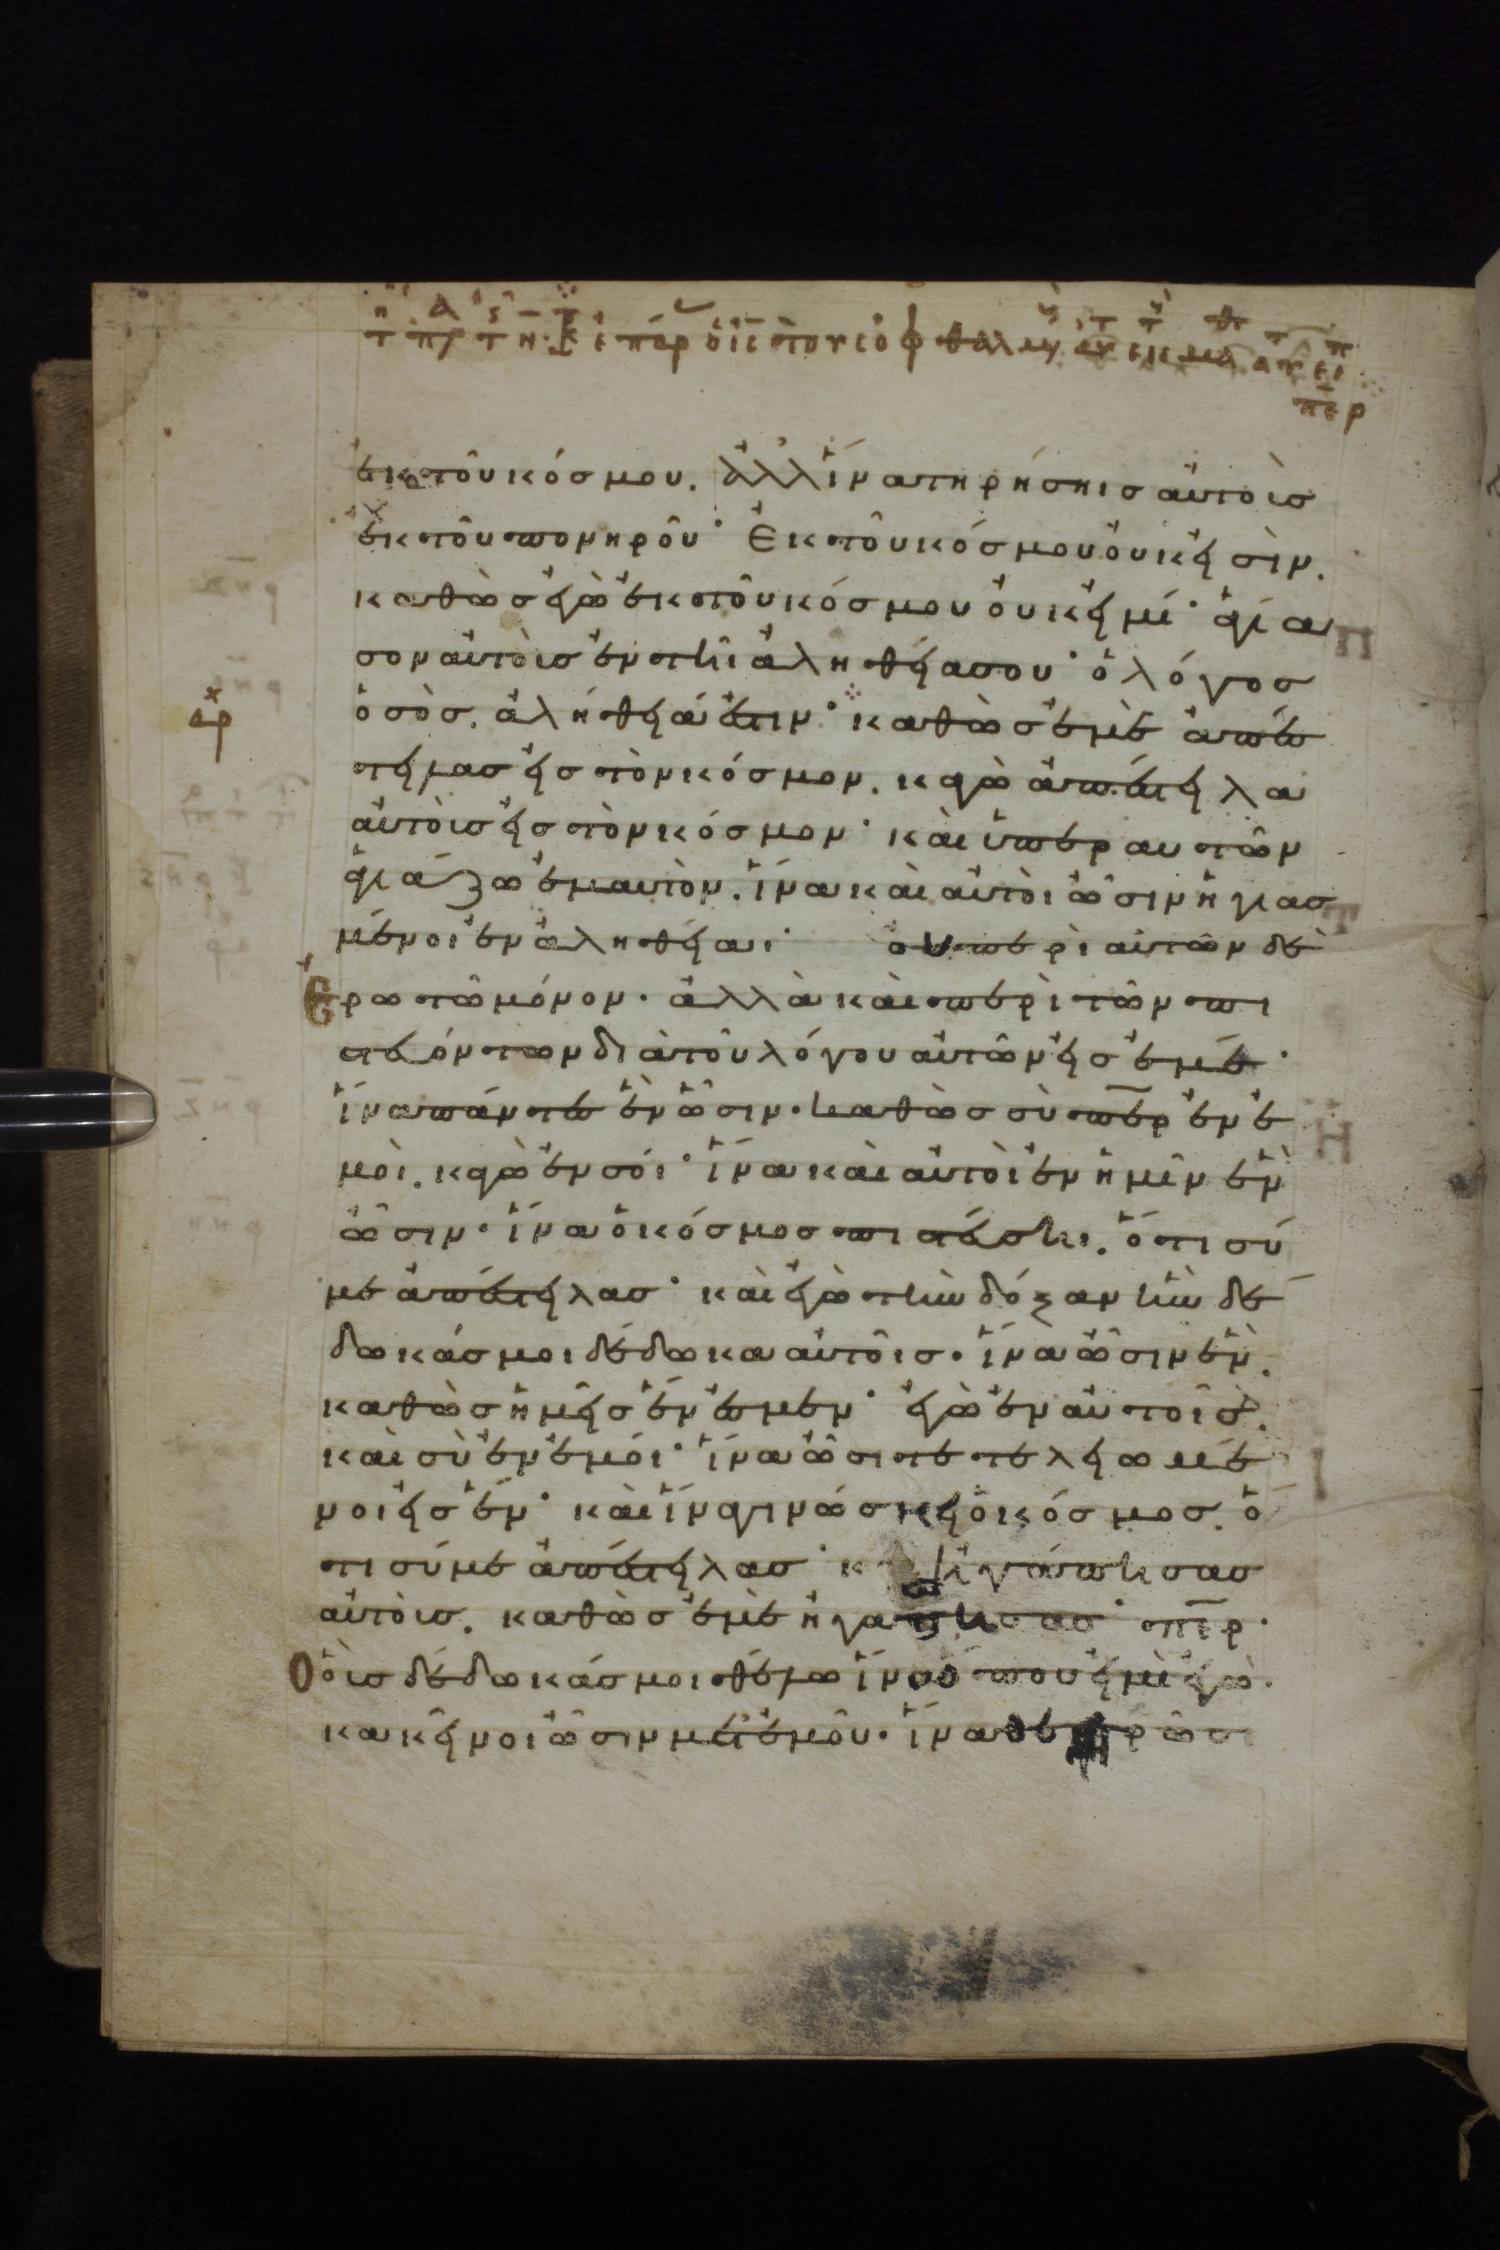 ἐκ τοῦ κόσμου. ἀλλ ἵνα τηρήσηισ αὐτοὺσ
ἐκ τοῦ πονηροῦ· Ἐκ τοῦ κόσμου οὐκ εἰσὶν.
καθὼσ ἐγὼ ἐκ τοῦ κόσμου οὐκ εἰμί· ἁγία
σον αὐτοὺσ ἐν τῆι ἀληθείᾳ σου· ὁ λόγοσ
ὁ σὸσ. ἀλήθειά ἐστιν· καθὼσ ἐμὲ ἀπέ
στειλασ εἰσ τὸν κόσμον. κἀγὼ ἀπέστειλα
αὐτοὺσ εἰσ τὸν κόσμον· καὶ ὑπερ αυτῶν
ἁγιάζω ἐμαυτὸν. ἵνα καὶ αὐτοὶ ὦσιν ἡγιασ
μένοι ἐν ἀληθείαι· οὐ περὶ αὐτῶν δὲ
Ἐρωτῶ μόνον. ἀλλὰ καὶ περὶ τῶν πι
στευόντων διὰ τοῦ λόγου αὐτῶν εἰσ ἐμέ·
ἵνα πάντεσ ἓν ὦσιν. καθὼσ σὺ περ ἐν ἐ
μοὶ. κἀγὼ ἐν σόι· ἵνα καὶ αὐτοὶ ἐν ἡμῖν ἓν
ὦσιν. ἵνα ὁ κόσμοσ πιστεύσηι. ὅτι σύ
με ἀπέστειλασ· καὶ ἐγὼ τὴν δόξαν ἣν δέ
δωκάσ μοι δέδωκα αὐτοῖσ. ἵνα ὦσιν ἓν.
καθὼσ ἡμεῖσ ἕν ἐσμεν· ἐγὼ ἐν αὐτοῖσ.
καὶ σὺ ἐν ἐμόι· ἵνα ὦσι τετελειωμέ
νοι εἰσ ἕν· καὶ ἵνα γινώσκει ὁ κόσμοσ. ὅ
τι σύ με ἀπέστειλασ· κ ἠγάπησασ
αὐτοὺσ. καθὼσ ἐμὲ ἠγάπησασ· περ.
οὓσ δέδωκάσ μοι θέλω ἵνα ὅπου εἰμὶ ἐγὼ.
κακεῖνοι ὦσιν μετ' ἐμοῦ. ἵνα θεωρῶσι